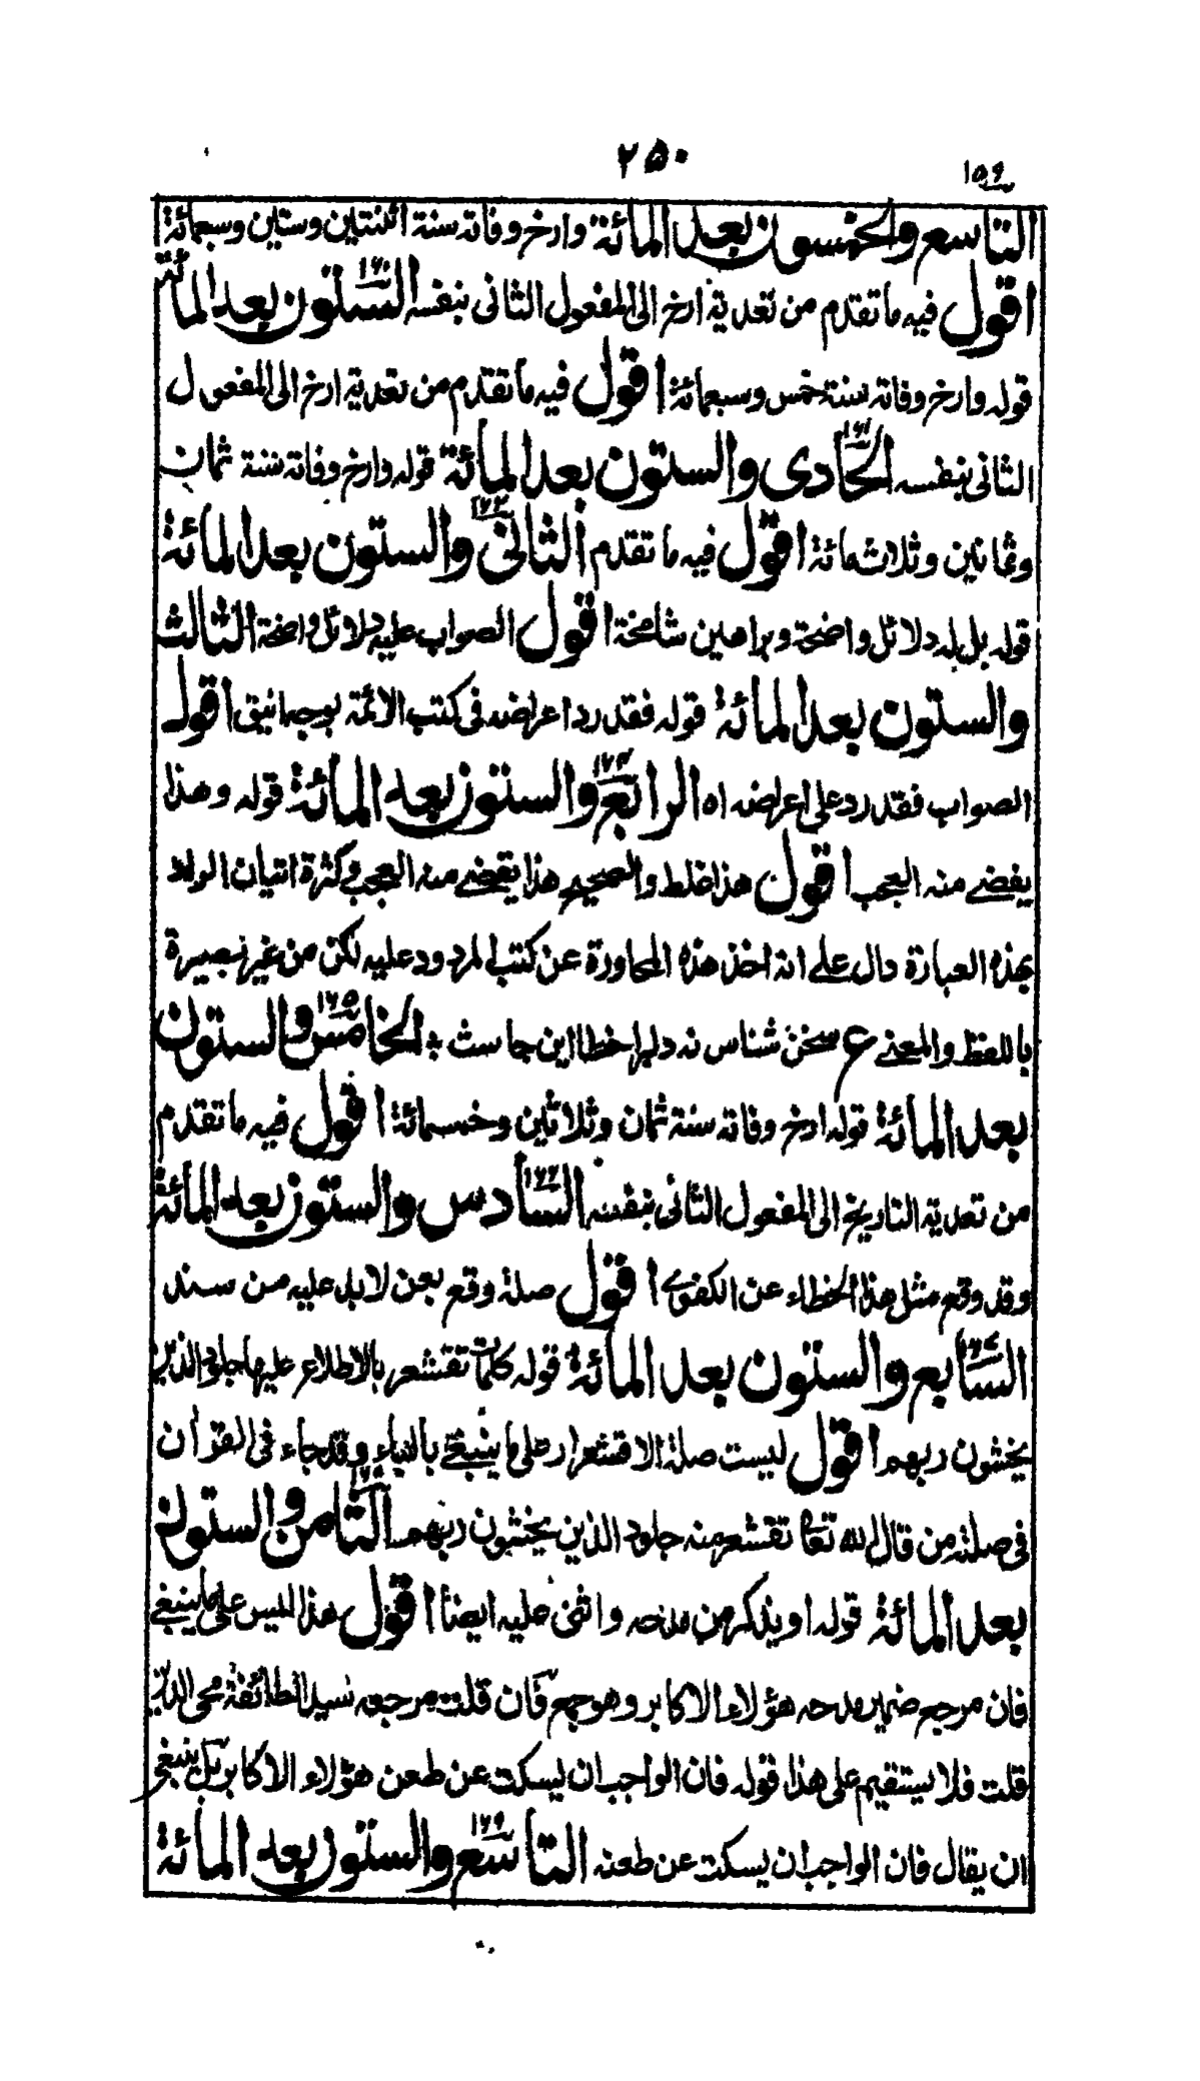 ۲۵۰
۱۵۹
التاسع والخمسون بعد المائة وارخ وفاته سنة اثنتين وستين وسبعمائة
اقول فيه ما تقدم من تعدية ارخ الى المفعول الثانى بنفسه الستون بعد المائة ۱۶۰
قوله وارخ وفاته سنة خمس وسبعمائة اقول فيه ما تقدم من تعدية ارخ الى المفعول
الثانى بنفسه الحادى والستون بعد المائة ۱۶۱ قوله وارخ وفاته سنة ثمان
وثمانين وثلاث مائة اقول فيه ما تقدم الثانى والستون بعد المائة ۱۶۲
قوله بل له دلائل واضحة وبراهين شامخة اقول الصواب عليه دلائل واضحة الثالث
والستون بعد المائة قوله فقد رد اعراضه فى كتب الائمة بوجه انيق اقول
الصواب فقد رد على اعراضه اه الرابع والستون بعد المائة ۱۶۴ قوله وهذا
يفضے منه العجب اقول هذا غلط والصحيح هذا يقضے منه العجب وكثرة اتيان الولد
بهذه العبارة دال علے انه اخذ هذه المحاورة عن كتب المردود عليه لكن من غير بصيرة
باللفظ والمعنے ع سخن شناس نه دلبرا خطا اين جاست ؞ الخامس والستون ۱۶۵
بعد المائة قوله ارخ وفاته سنة ثمان وثلاثين وخمسمائة اقول فيه ما تقدم
من تعدية التاريخ الى المفعول الثانى بنفسه السادس والستون بعد المائة ۱۶۶
وقد وقع مثل هذا الخطاء عن الكفوے اقول صلة وقع بعن لابد عليه من سند
السابع والستون بعد المائة ۱۶۷ قوله كلمات تقشعر بالاطلاع عليها جلود الذين
يخشون ربهم اقول ليست صلة الاقشعرار على ما ينبغے بالباء وقد جاء فى القرآن
فى صلته من قال الله تعالى تقشعر منه جلود الذين يخشون ربهم الثامن والستون ۱۶۸
بعد المائة قوله او يذكر من مدحه واثنى عليه ايضا اقول هذا ليس على ما ينبغے
فان مرجع ضمير مدحه هؤلاء الاكابر وهو جمع فان قلت مرجعه سيد الطائفة محى الدين
قلت فلا يستقيم على هذا قوله فان الواجب ان يسكت عن طعن هؤلاء الاكابر بل ينبغى
ان يقال فان الواجب ان يسكت عن طعنه التاسع والستون بعد المائة ۱۶۹